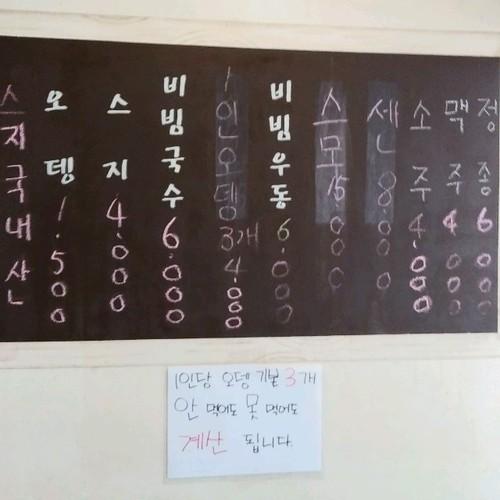 스지국내산
오뎅 1.500
스지 4.000
비빔국수 6.000
1인오뎅 3개 4.000
비빔우동 6.000
스모 15.000
세 8.000
소주 4.000
맥주 4.000
정종 6.000
1인당 오뎅 기본 3개
안 먹어도 못 먹어도
계산 됩니다.